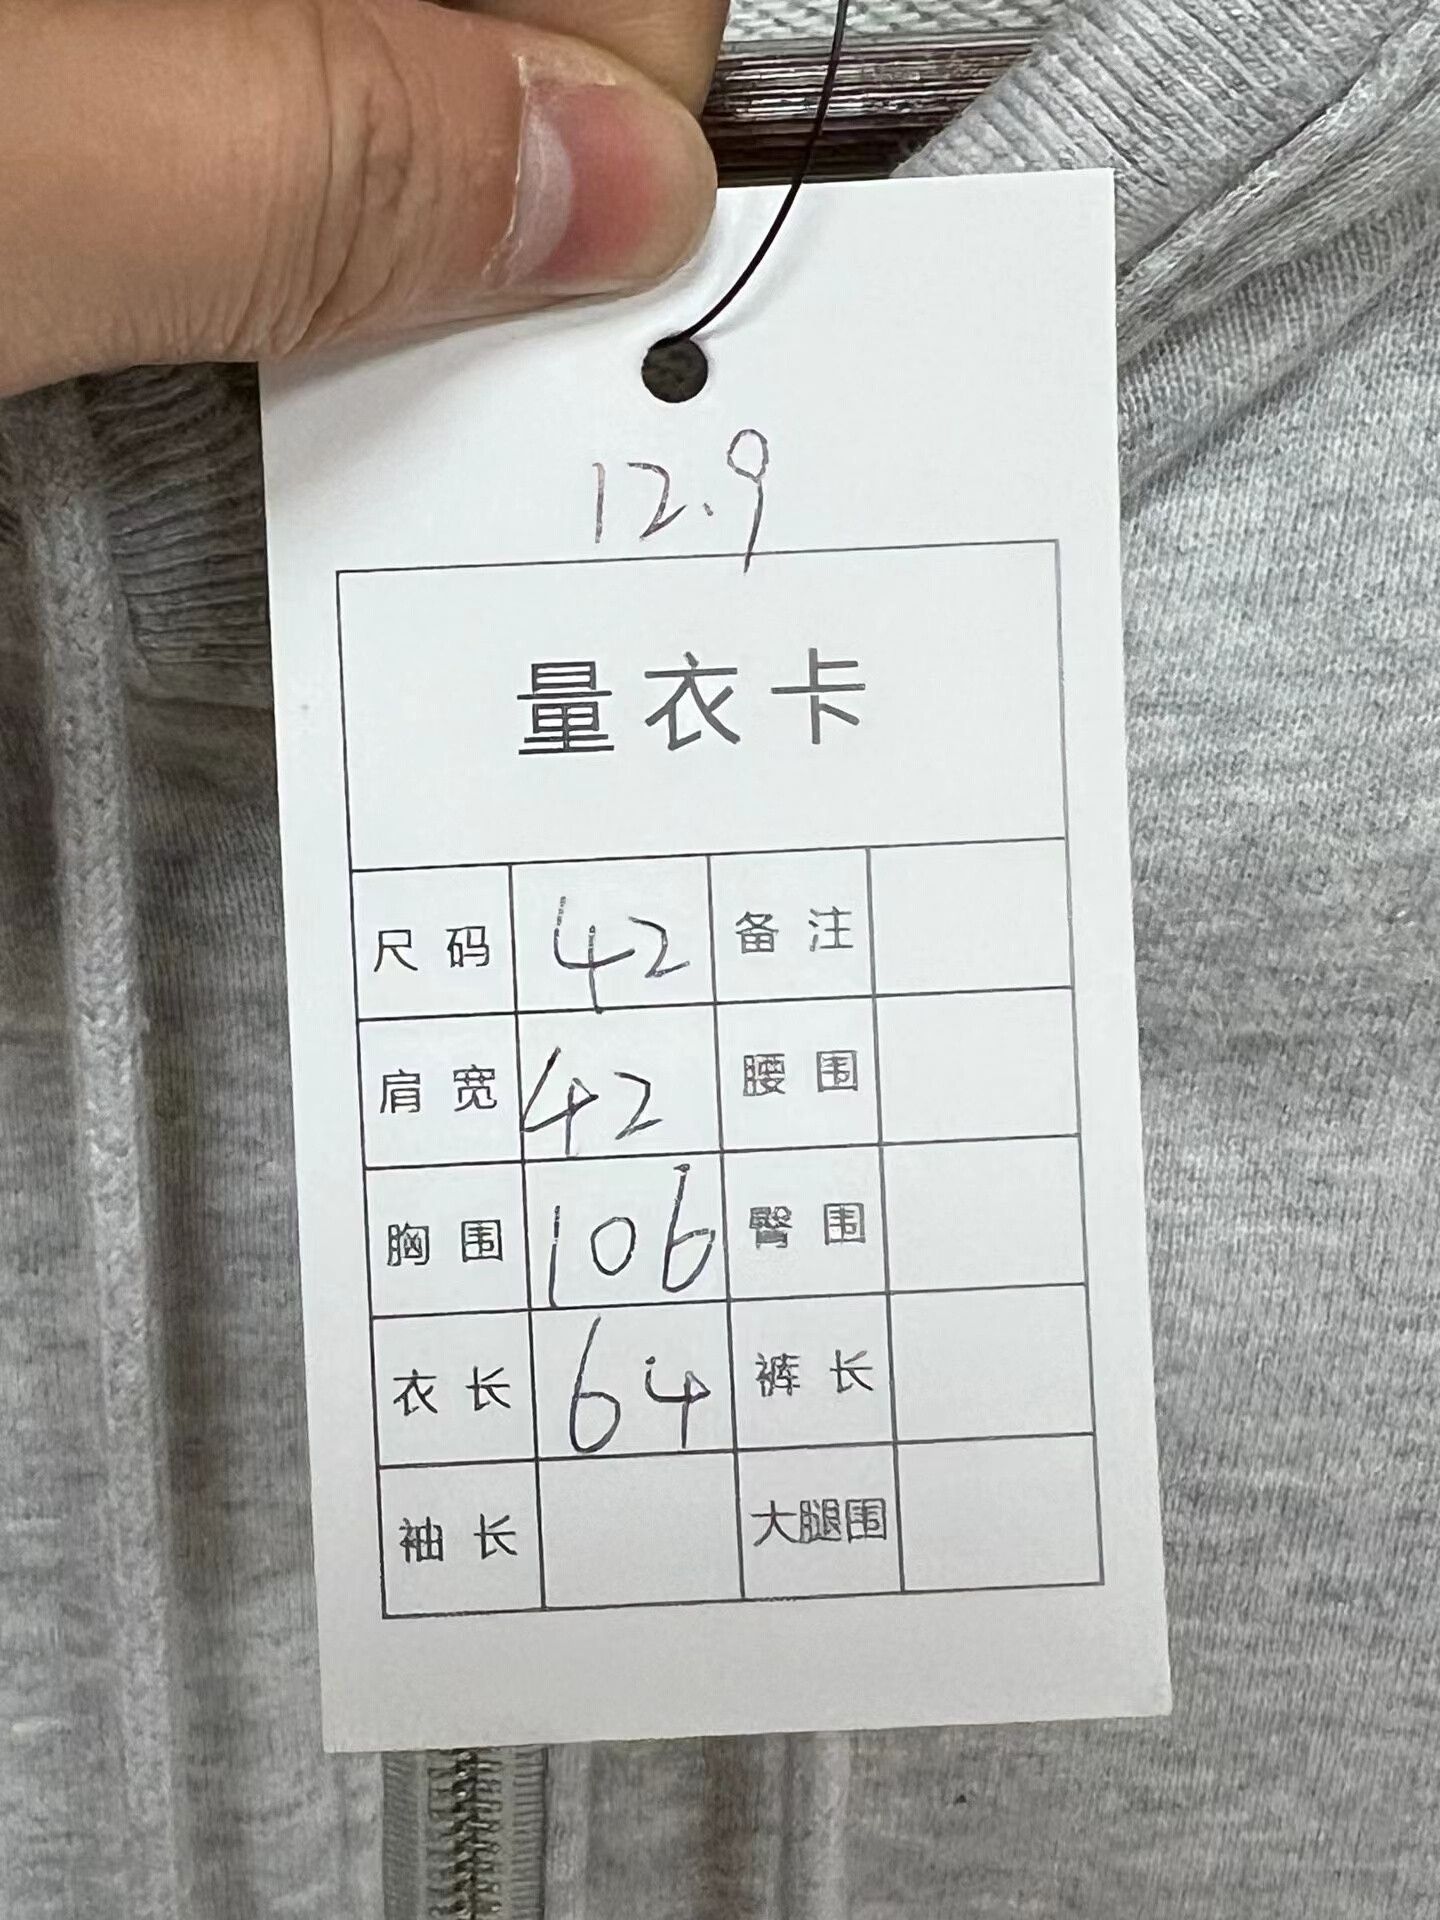 12.9
量衣卡
尺码 42 备注
肩宽 42 腰围
胸围 106 臀围
衣长 64 裤长
袖长 大腿围